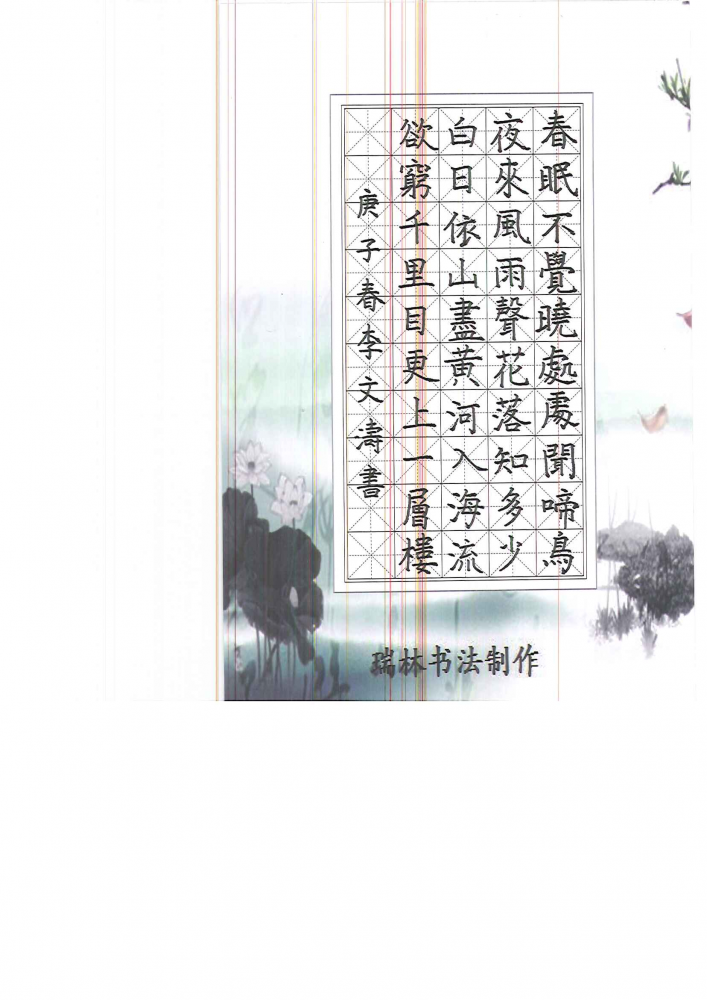 春眠不覺曉處處聞啼鳥
夜來風雨聲花落知多少
白日依山盡黃河入海流
欲窮千里目更上一層樓
庚子春李文濤書
瑞林书法制作